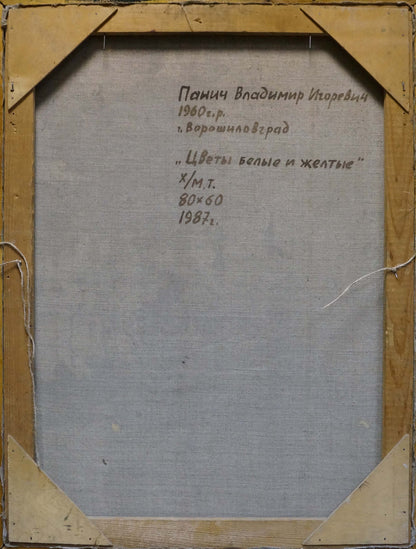 Панич Владимир Игоревич
1960г.р.
г. Ворошиловград
„Цветы белые и желтые"
х/м.т.
80×60
1987г.